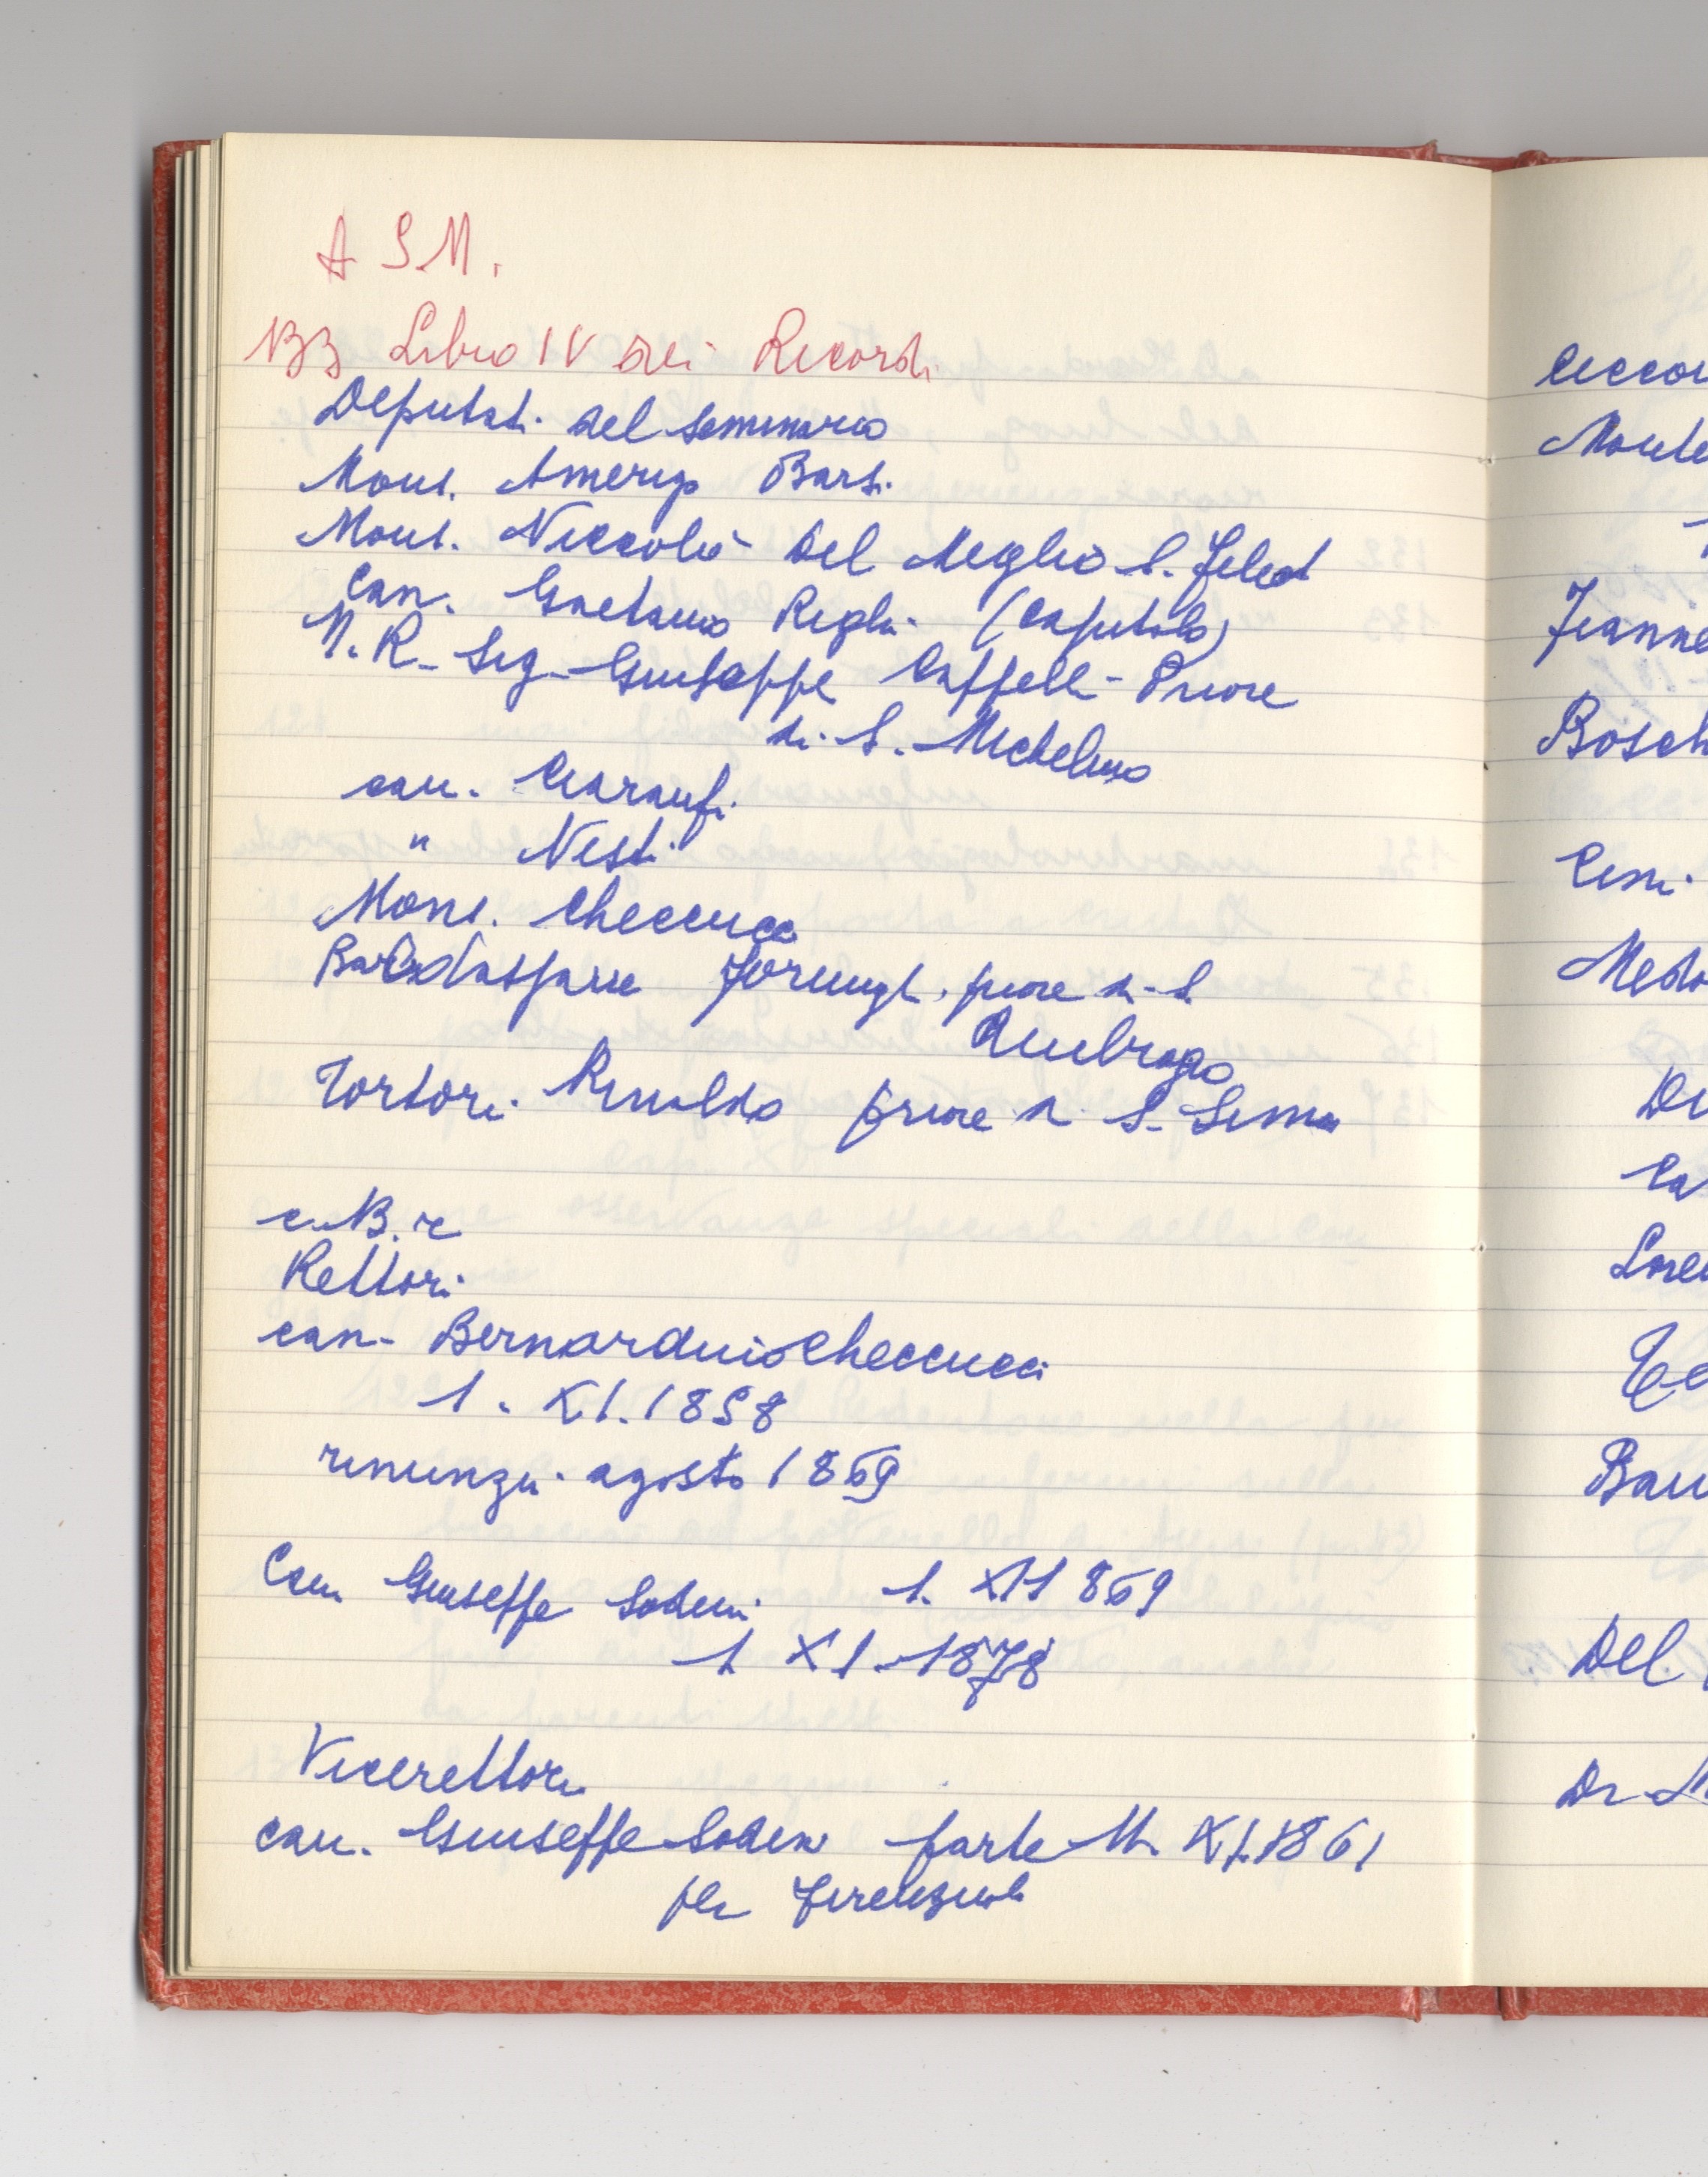 A S.M.
B3 Libro IV dei Ricordi
Deputati del Seminario
Mons. Amerigo Barsi
Mons. Niccolò Del Meglio S. Feled
Can. Gaetano Righi (Capitolo)
M. R. Sig. Giuseppe Caffelli - Priore
di S. Michelino
can. Ciaranfi
" Nesti
Mons. Checcucci
Baldassarre Formigli, priore di S.
Ambrogio
Tortori Rinaldo priore di S. Simone
c. B. r
Rettori
can- Bernardino Checcucci
1. XI. 1858
rinunzia agosto 1869
Can. Giuseppe Sodini 1. XI 1869
1 XI. 1878
Vicerettori
can. Giuseppe Sodini parte XI.1861
per Firenzuola
ceccou
Monte
Jeanne
Bosch
Cini
Medo
Di
Ca
Lore
Ce
Bau
Del
Dr